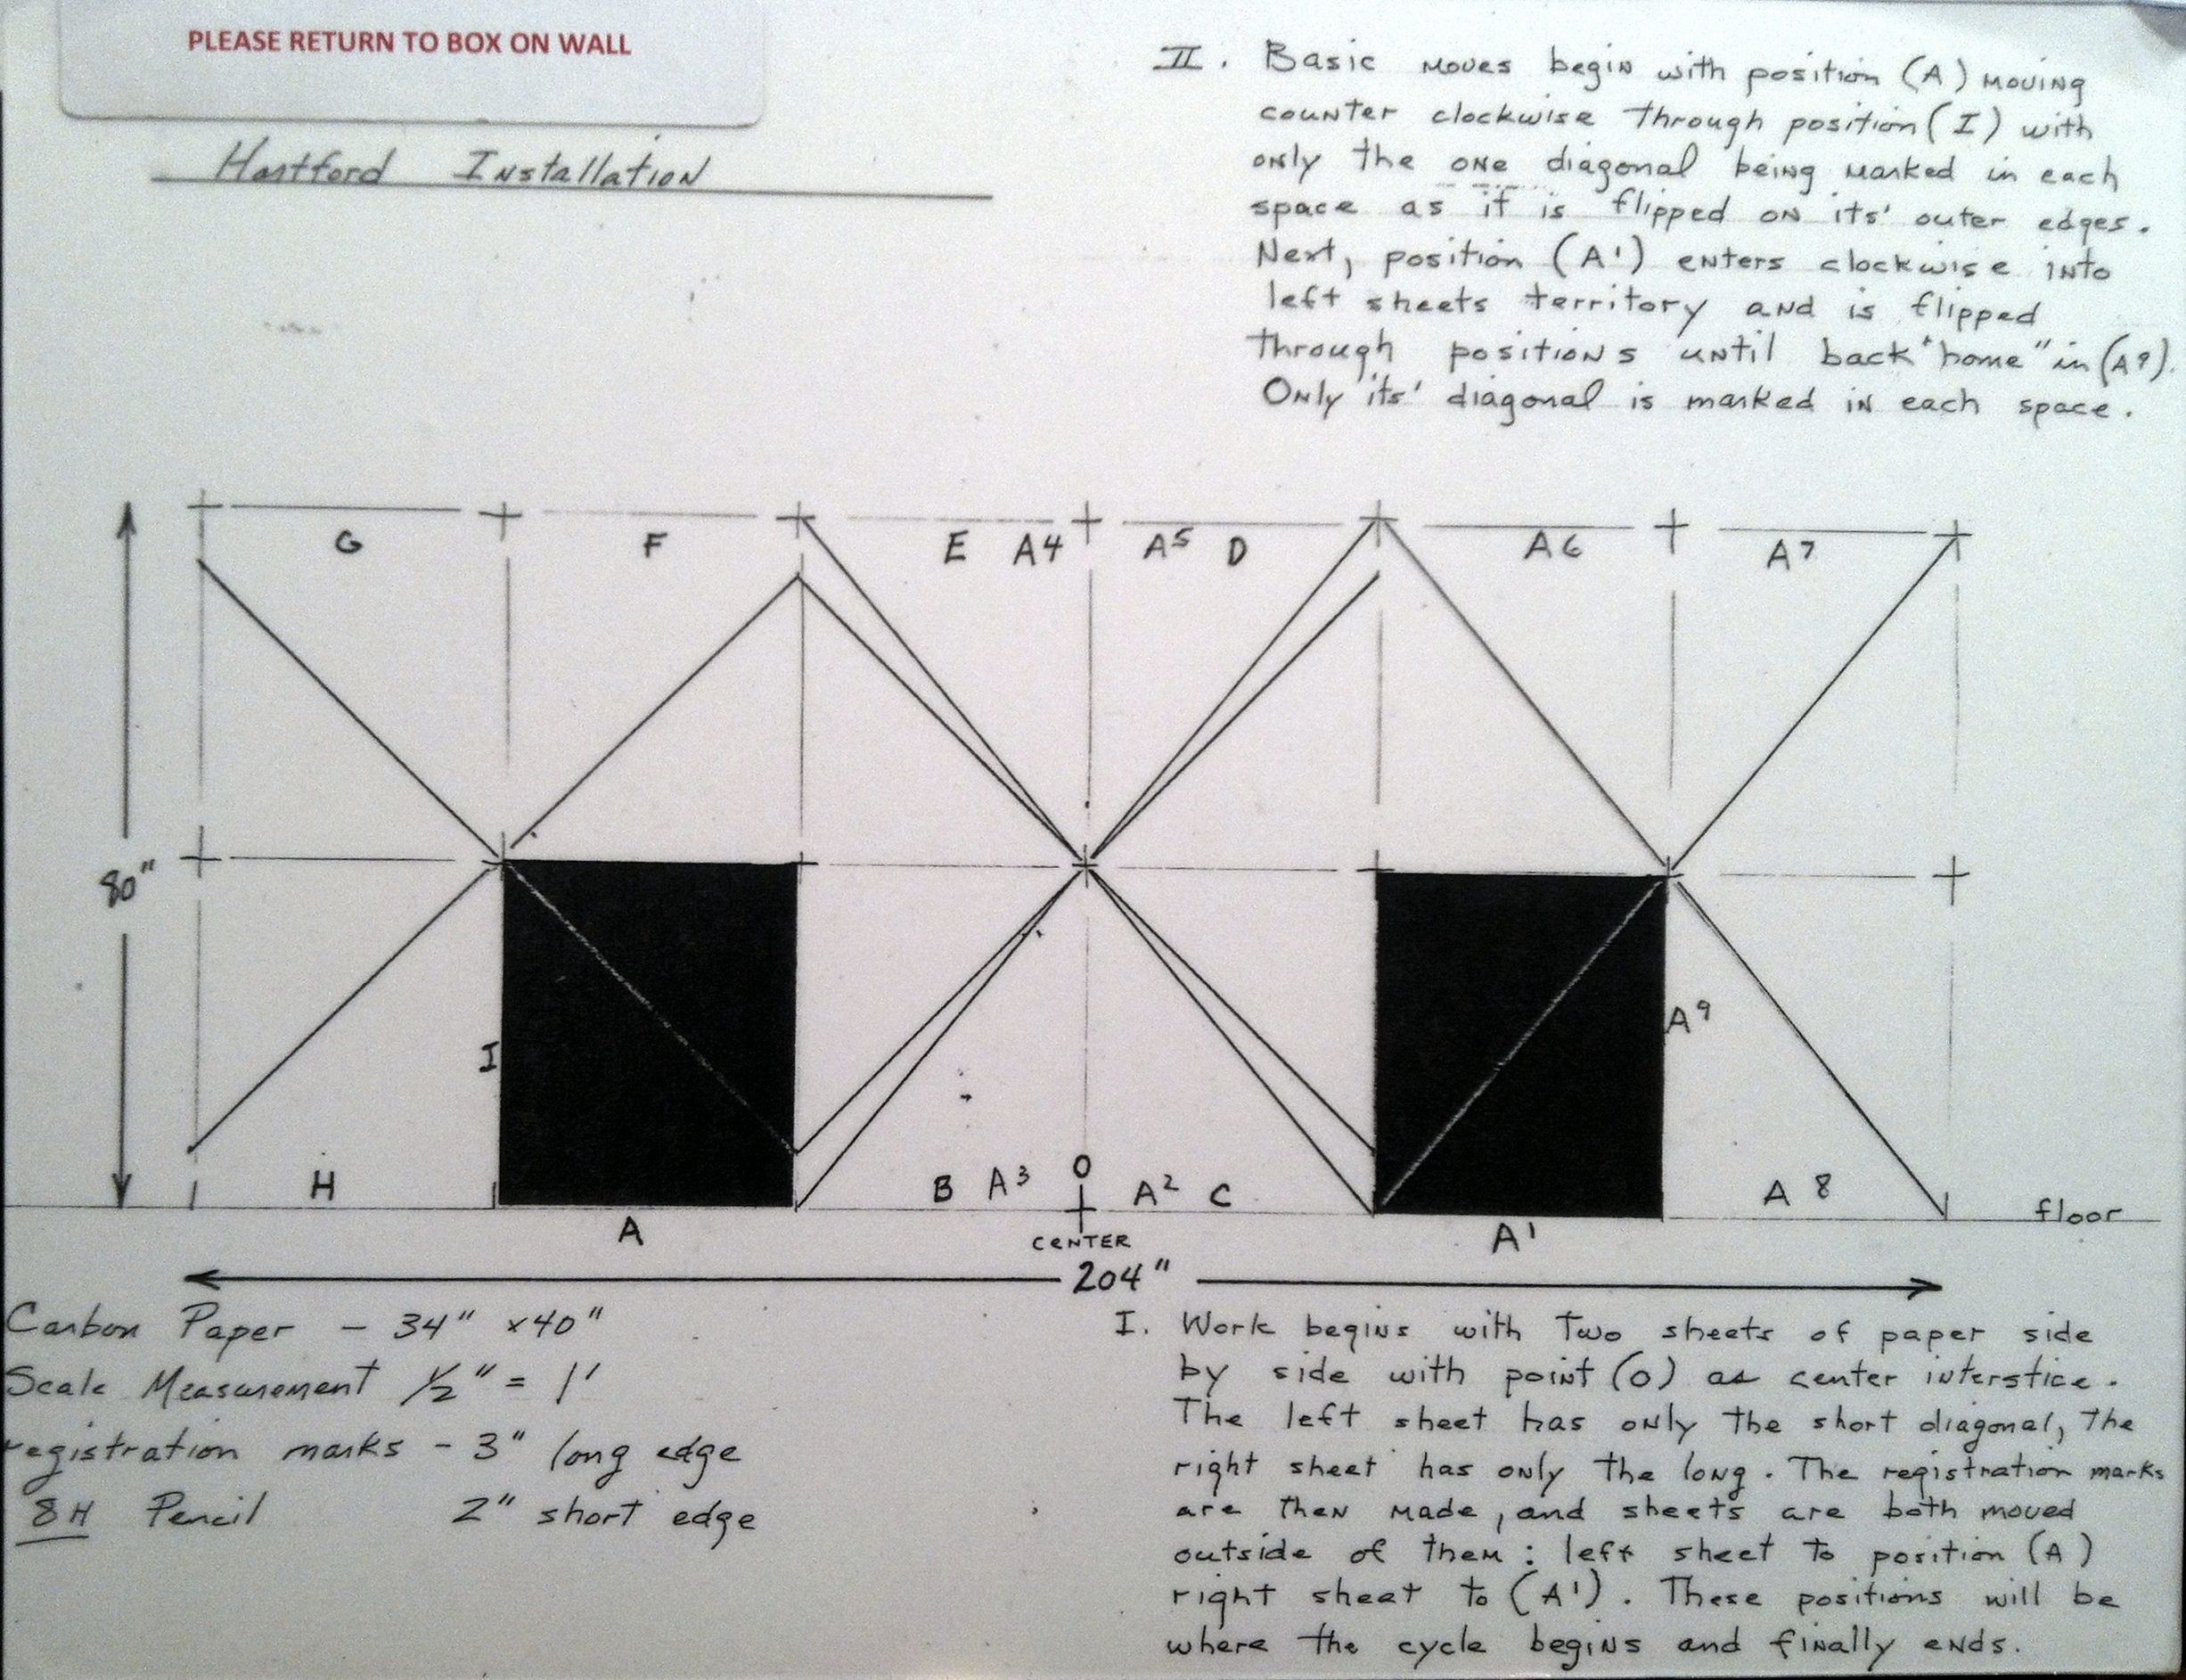 PLEASE RETURN TO BOX ON WALL
Hartford Installation
II. Basic moves begin with position (A) moving
counter clockwise through position (I) with
only the one diagonal being marked in each
space as it is flipped on its' outer edges.
Next, position (A¹) enters clockwise into
left sheets territory and is flipped
through positions until back "home" in (A⁹).
Only its' diagonal is marked in each space.
G F E A⁴ A⁵ D A⁶ A⁷
80"
A⁹
I
H B A³ O A² C A⁸
floor
A CENTER A¹
204"
Carbon Paper - 34" x 40"
Scale Measurement ½" = 1'
registration marks - 3" long edge
8H Pencil 2" short edge
I. Work begins with two sheets of paper side
by side with point (O) as center interstice.
The left sheet has only the short diagonal, the
right sheet has only the long. The registration marks
are then made, and sheets are both moved
outside of them: left sheet to position (A)
right sheet to (A¹). These positions will be
where the cycle begins and finally ends.